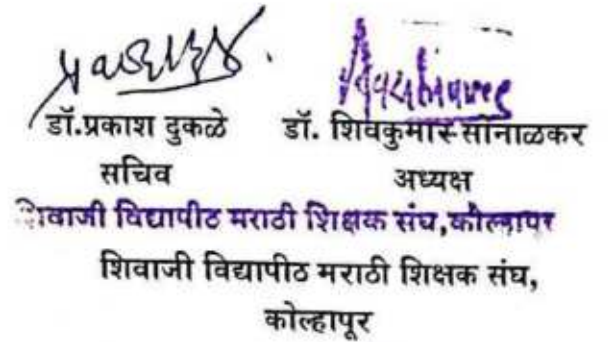 डॉ.प्रकाश दुकळे डॉ. शिवकुमार सोनाळकर
सचिव अध्यक्ष
शिवाजी विद्यापीठ मराठी शिक्षक संघ,कोल्हापूर
शिवाजी विद्यापीठ मराठी शिक्षक संघ,
कोल्हापूर